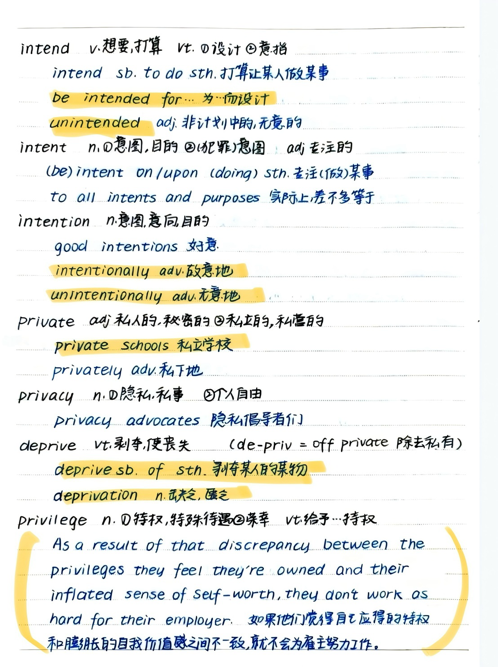 intend v.想要,打算 vt.①设计②意指
intend sb. to do sth.打算让某人做某事
be intended for… 为…而设计
unintended adj.非计划中的,无意的
intent n.①意图,目的②(犯罪)意图 adj专注的
(be) intent on/upon (doing) sth.专注(做)某事
to all intents and purposes 实际上,差不多等于
intention n.意图,意向,目的
good intentions 好意
intentionally adv.故意地
unintentionally adv.无意地
private adj私人的,秘密的②私立的,私营的
private schools 私立学校
privately adv.私下地
privacy n.①隐私,私事 ②个人自由
privacy advocates 隐私倡导者们
deprive vt.剥夺,使丧失 (de-priv = off private 除去私有)
deprive sb. of sth.剥夺某人的某物
deprivation n.缺乏,匮乏
privilege n.①特权,特殊待遇②荣幸 vt.给予…特权
As a result of that discrepancy between the
privileges they feel they're owned and their
inflated sense of self-worth, they don't work as
hard for their employer. 如果他们觉得自己应得的特权
和膨胀的自我价值感之间不一致,就不会为雇主努力工作。